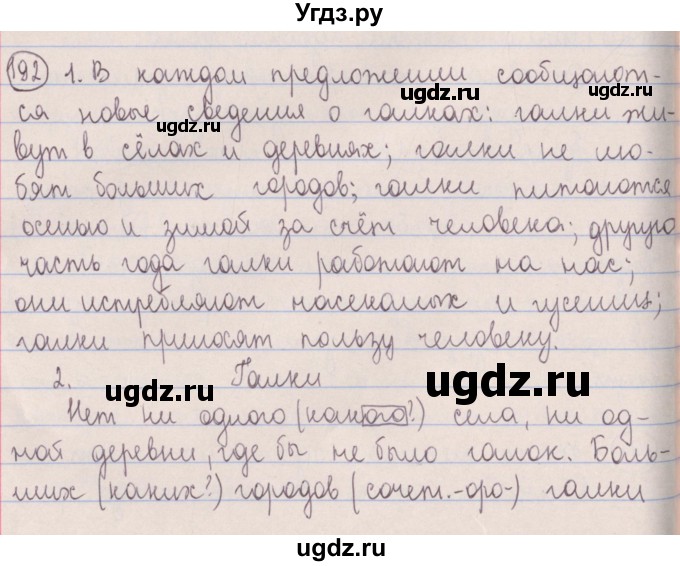 Угдз.ру
192 1. В каждом предложении сообщают-
ugdz.ru ugdz.ru
ся новые сведения о галках: галки жи-
вут в сёлах и деревнях; галки не лю-
бят больших городов; галки питаются
осенью и зимой за счёт человека; другую
часть года галки работают на нас;
они истребляют насекомых и гусениц;
галки приносят пользу человеку.
2. Галки
ugdz.ru ugdz.ru
Нет ни одного (какого?) села, ни од-
ной деревни, где бы не было галок. Боль-
ших (каких?) городов (сочет. -оро-) галки
ugdz.ru